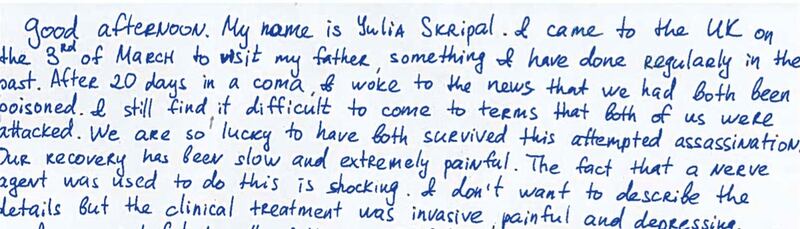 good afternoon. My name is Yulia Skripal. I came to the UK on
the 3rd of March to visit my father, something I have done regularly in the
past. After 20 days in a coma, I woke to the news that we had both been
poisoned. I still find it difficult to come to terms that both of us were
attacked. We are so lucky to have both survived this attempted assassination.
Our recovery has been slow and extremely painful. The fact that a nerve
agent was used to do this is shocking. I don't want to describe the
details but the clinical treatment was invasive, painful and depressing.